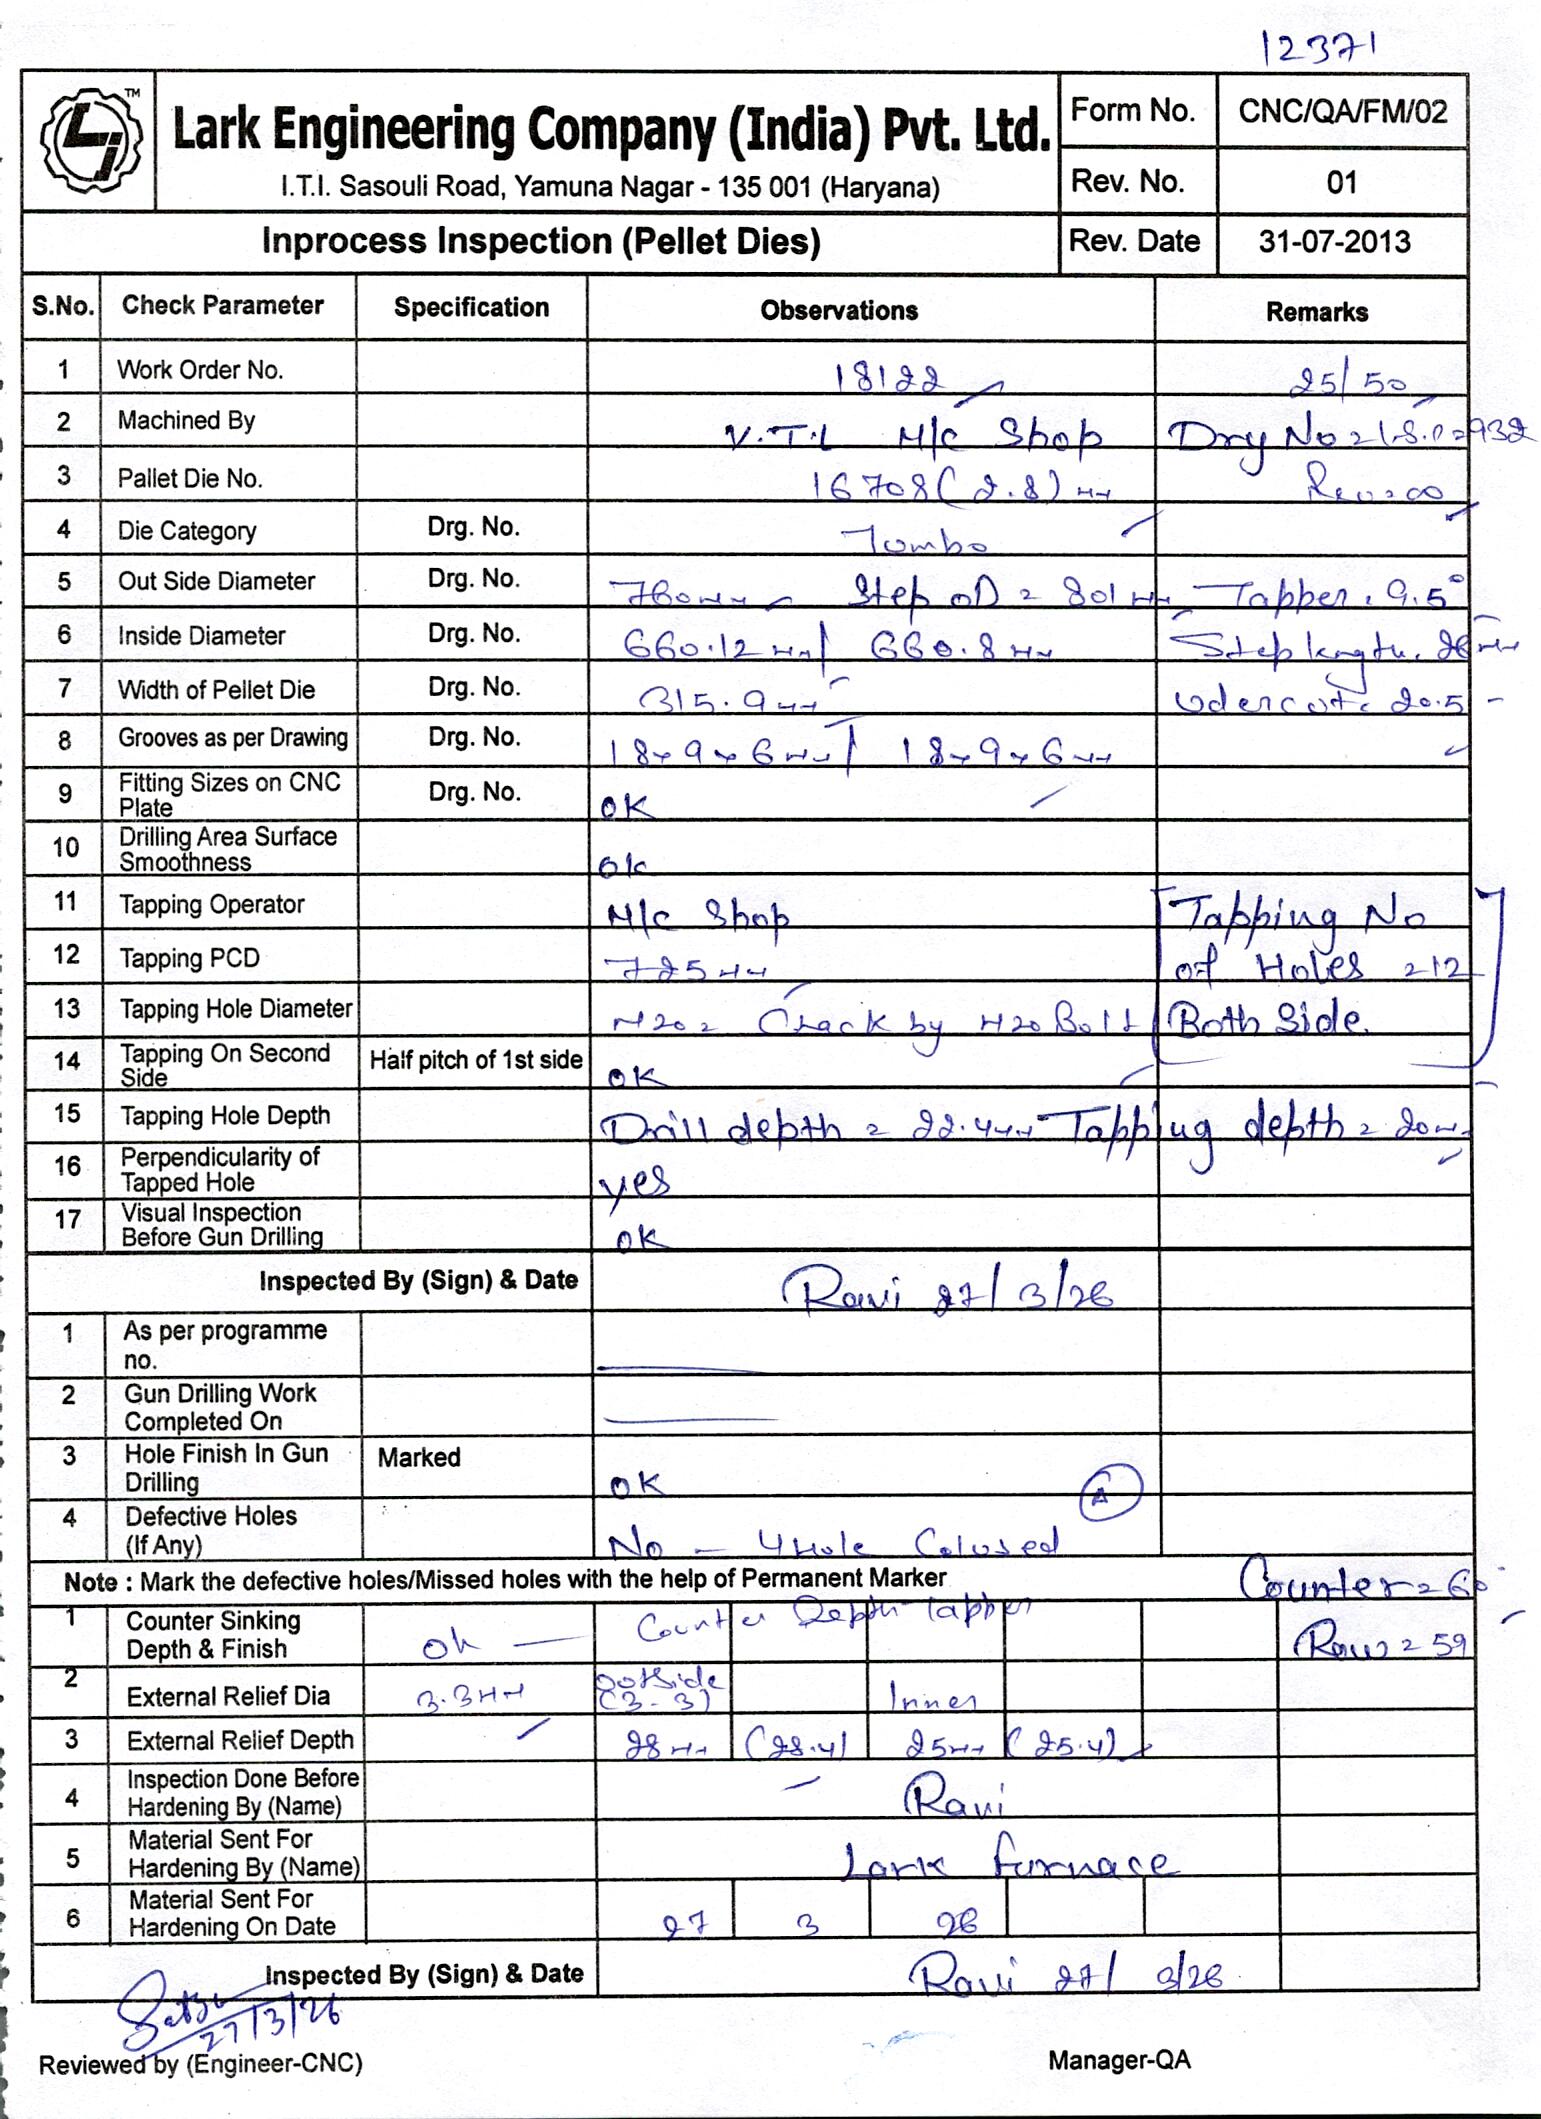 12371
TM
Lark Engineering Company (India) Pvt. Ltd.
I.T.I. Sasouli Road, Yamuna Nagar - 135 001 (Haryana)
Form No. CNC/QA/FM/02
Rev. No. 01
Inprocess Inspection (Pellet Dies) Rev. Date 31-07-2013
S.No. Check Parameter Specification Observations Remarks
1 Work Order No. 18122 25/50
2 Machined By V.T.L M/c Shop Drg No
3 Pallet Die No. 16708 (2.8) mm Rev = 00
4 Die Category Drg. No. Jumbo
5 Out Side Diameter Drg. No. 760mm Step OD = 801 mm Tapper = 9.5°
6 Inside Diameter Drg. No. 660.12 mm / 660.8 mm Step length = 26 mm
7 Width of Pellet Die Drg. No. 315.9 mm Udercut = 20.5
8 Grooves as per Drawing Drg. No. 18x9x6 mm / 18x9x6 mm
9 Fitting Sizes on CNC Plate Drg. No. OK
10 Drilling Area Surface Smoothness Ok
11 Tapping Operator M/c Shop Tapping No
12 Tapping PCD 725 mm of Holes = 12
13 Tapping Hole Diameter M20 = Chack by M20 Bolt Both Side
14 Tapping On Second Side Half pitch of 1st side OK
15 Tapping Hole Depth Drill depth = 22.4mm Tapping depth = 20mm
16 Perpendicularity of Tapped Hole yes
17 Visual Inspection Before Gun Drilling OK
Inspected By (Sign) & Date Ravi 27/3/26
1 As per programme no.
2 Gun Drilling Work Completed On
3 Hole Finish In Gun Drilling Marked OK A
4 Defective Holes (If Any) No - 4 Hole Colused
Note : Mark the defective holes/Missed holes with the help of Permanent Marker Counter = 60
1 Counter Sinking Depth & Finish Ok Counter Depth Tapper Rows = 59
2 External Relief Dia 3.3mm Outside (3-3) Inner
3 External Relief Depth 28mm (28.4) 25mm (25.4)
4 Inspection Done Before Hardening By (Name) Ravi
5 Material Sent For Hardening By (Name) Lark furnace
6 Material Sent For Hardening On Date 27 3 26
Inspected By (Sign) & Date Ravi 27/3/26
27/3/26
Reviewed by (Engineer-CNC) Manager-QA